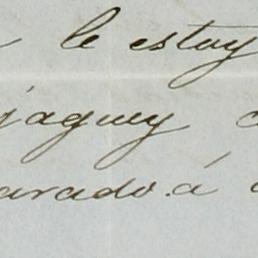 le estoy
jaguey
arado. á